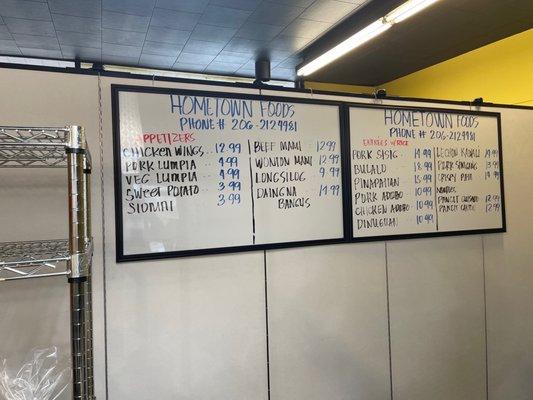 HOMETOWN FOODS
PHONE # 206-212-9981
APPETIZERS
CHICKEN WINGS .. 12.99
PORK LUMPIA ... 4.99
VEG LUMPIA ... 4.99
SWEET POTATO ... 3.99
SIOMAI ... 3.99
BEEF MAMI 12.99
WONTON MAMI 12.99
LONGSILOG 9.99
DAING NA 14.99
BANGUS
HOMETOWN FOODS
PHONE # 206-212-9981
ENTREES W/RICE
PORK SISIG
BULALO
PINAPAITAN
PORK ADOBO
CHICKEN ADOBO
DINUGUAN
LECHON KAWALI
PORK SINIGANG
CRISPY PATA
NOODLES
PANCIT
PANCIT 12.99